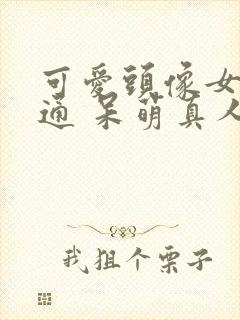 可愛頭像女
通 呆萌真人
我狙个栗子